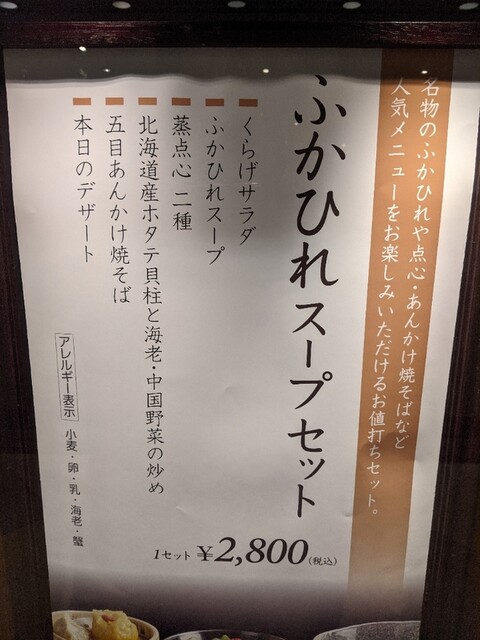 名物のふかひれや点心・あんかけ焼そばなど
人気メニューをお楽しみいただけるお値打ちセット。
ふかひれスープセット
くらげサラダ
ふかひれスープ
蒸点心 二種
北海道産ホタテ貝柱と海老・中国野菜の炒め
五目あんかけ焼そば
本日のデザート
アレルギー表示 小麦・卵・乳・海老・蟹
1セット ¥2,800(税込)